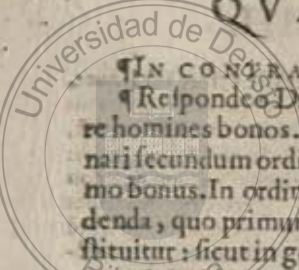 QV
¶IN CONTRA
¶Reſpondeo D
re homines bonos.
nari ſecundum ord
mo bonus. In ordin
denda, quo primum
ſtituitur: ſicut in g